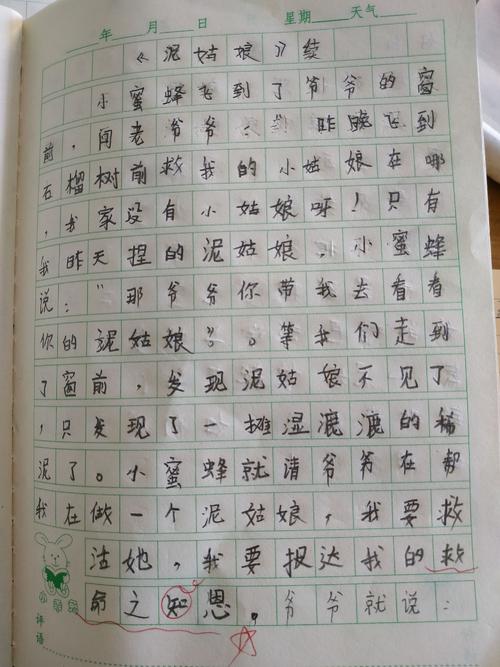 年 月 日 星期 天气
《泥姑娘》续
小蜜蜂飞到了爷爷的窗
前，问老爷爷：“昨晚飞到
石榴树前救我的小姑娘在哪
，我家没有小姑娘呀！只有
我昨天捏的泥姑娘，小蜜蜂
说：“那爷爷你带我去看看
你的泥姑娘”。等我们走到
了窗前，发现泥姑娘不见了
，只发现了一摊湿漉漉的稀
泥了。小蜜蜂就请爷爷在帮
我在做一个泥姑娘，我要救
活她，我要报达我的救
命之知恩。爷爷就说：
评语